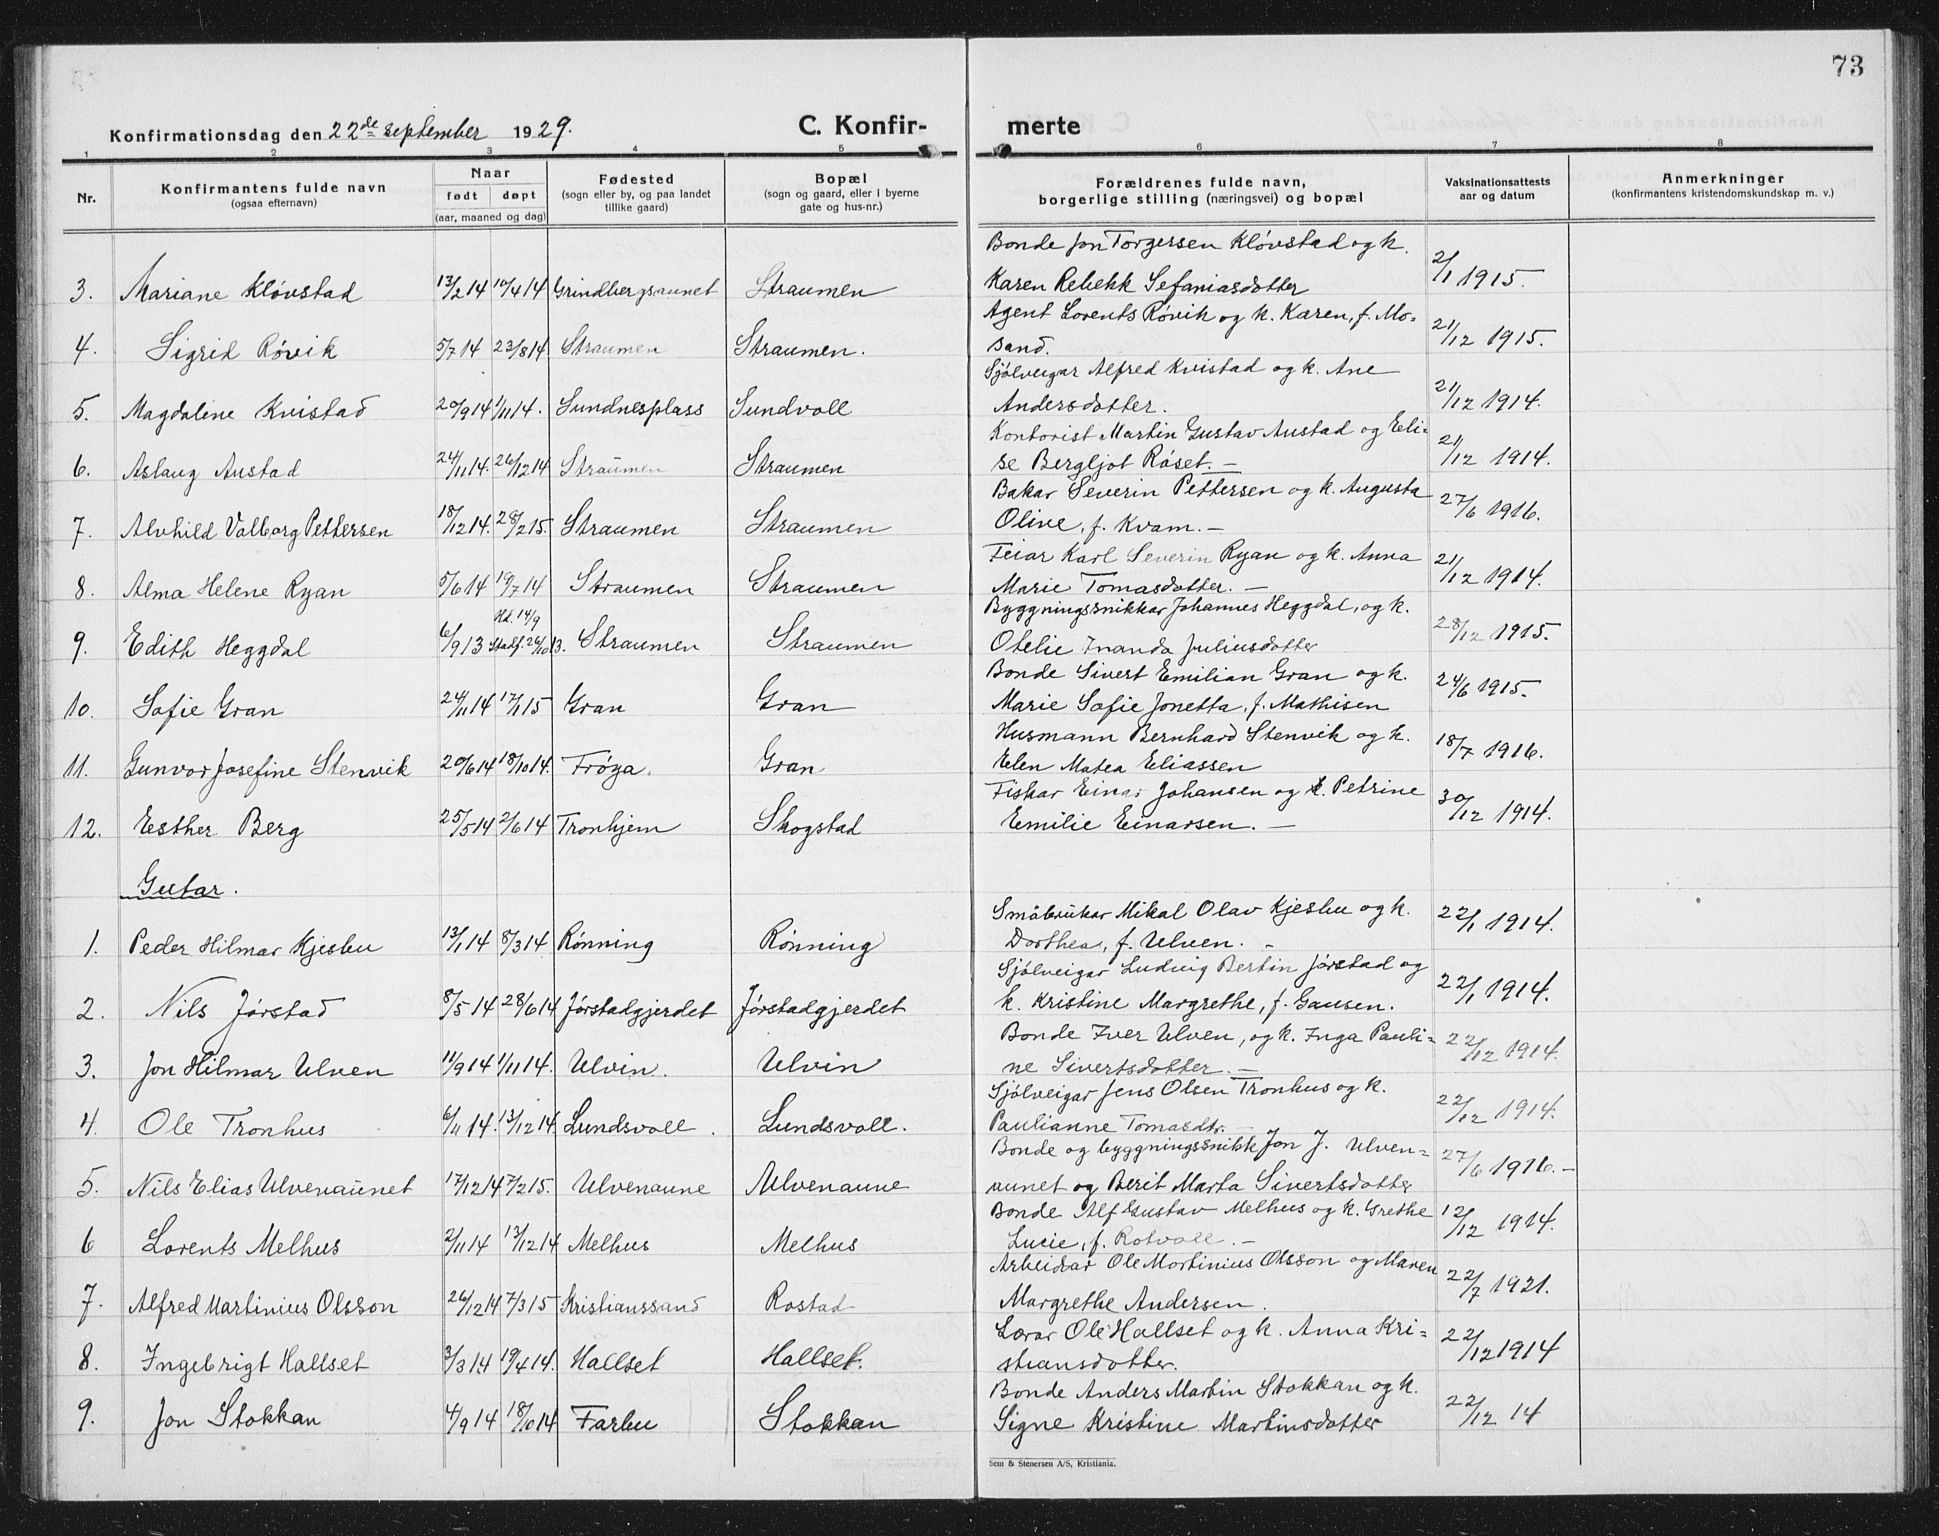 73
Konfirmationsdag den 22de september 1929.
C. Konfir-
merte
1 2 3 4 5 6 7 8
Nr.
Konfirmantens fulde navn
(ogsaa efternavn)
Naar
født døpt
(aar, maaned og dag)
Fødested
(sogn eller by, og paa landet
tillike gaard)
Bopæl
(sogn og gaard, eller i byerne
gate og hus-nr.)
Forældrenes fulde navn,
borgerlige stilling (næringsvei) og bopæl
Vaksinationsattests
aar og datum
Anmerkninger
(konfirmantens kristendomskundskap m. v.)
Bonde Jon Torgersen Kløvstad og k.
3. Mariane Kløvstad 13/2 14 10/4 14 Grindbergsaunet Straumen Karen Rebekk Sefaniasdotter 2/1 1915.
Agent Lorents Røvik og k. Karen, f. Mo-
4. Sigrid Røvik 5/7 14 23/8 14 Straumen Straumen. sand. 21/12 1915.
Sjølveigar Alfred Kvistad og k. Ane
5. Magdalene Kvistad 20/9 14 1/11 14. Sundnesplass Sundvoll Andersdotter. 21/12 1914.
Kontorist Martin Gustav Austad og Eli-
6. Aslaug Austad 24/11 14. 26/12 14 Straumen Straumen se Bergljot Røset. — 21/12 1914.
Bakar Severin Pettersen og k. Augusta
7. Alvhild Valborg Pettersen 18/12 14. 28/2 15. Straumen Straumen Olive, f. Kvam. — 27/6 1916.
Feiar Karl Severin Ryan og k. Anna
8. Alma Helene Ryan 5/6 14 19/7 14 Straumen Straumen Marie Tomasdotter. — 21/12 1914.
Hd. 14/9
Byggningssnikkar Johannes Heggdal, og k.
9. Edith Heggdal 6/9 13 Stadf. 26/10 13. Straumen Straumen Otelie Inanda Juliusdotter 28/12 1915.
Bonde Sivert Emilian Gran og k.
10. Sofie Gran 24/11 14 17/1 15 Gran Gran Marie Sofie Jonetta, f. Mathisen 24/6 1915.
Husmann Bernhard Stenvik og k.
11. Gunvor Josefine Stenvik 20/6 14 18/10 14. Frøya. Gran Elen Matea Eliassen 18/7 1916.
Fiskar Einar Johansen og k. Petrine
12. Esther Berg 25/5 14 2/6 14 Tronhjem Skogstad Emilie Einarsen. — 30/12 1914.
Gutar.
Småbrukar Mikal Olav Kjesbu og k.
1. Peder Hilmar Kjesbu 13/1 14 8/3 14 Rønning Rønning Dorthea, f. Ulven. - 22/1 1914.
Sjølveigar Ludvig Bertin Jørstad og
2. Nils Jørstad 8/5 14 28/6 14 Jørstadgjerdet Jørstadgjerdet k. Kristine Margrethe, f. Gausen. 22/1 1914.
Bonde Iver Ulven, og k. Inga Pauli-
3. Jon Hilmar Ulven 11/9 14 1/11 14. Ulvin. Ulvin ne Sivertsdotter. — 22/12 1914.
Sjølveigar Jens Olsen Tronhus og k.
4. Ole Tronhus 6/11 14. 13/12 14 Lundsvoll. Lundsvoll. Paulianne Tomasdtr. — 22/12 1914.
Bonde og byggningssnikk Jon J. Ulven-
5. Nils Elias Ulvenaunet 17/12 14 7/2 15. Ulvenaune Ulvenaune aunet og Berit Marta Sivertsdotter 27/6 1916.-
Bonde Alf Gustav Melhus og k. Grethe
6 Lorents Melhus 2/11 14 13/12 14 Melhus Melhus Lucie, f. Rotvoll. — 12/12 1914.
Arbeidar Ole Mortinius Olsson og Maren
7. Alfred Martinius Olsson 26/12 14 7/3 15 Kristianssand Rostad Margrethe Andersen. 22/7 1921.
Lærar Ole Hallset og k. Anna Kri-
8. Ingebrigt Hallset 3/3 14 19/4 14. Hallset Hallset. stiansdotter. 22/12 1914
Bonde Anders Martin Stokkan og k.
9. Jon Stokkan 4/9 14 18/10 14 Farbu Stokkan Signe Kristine Martinsdotter 22/12 14
Sem & Stenersen A/S, Kristiania.